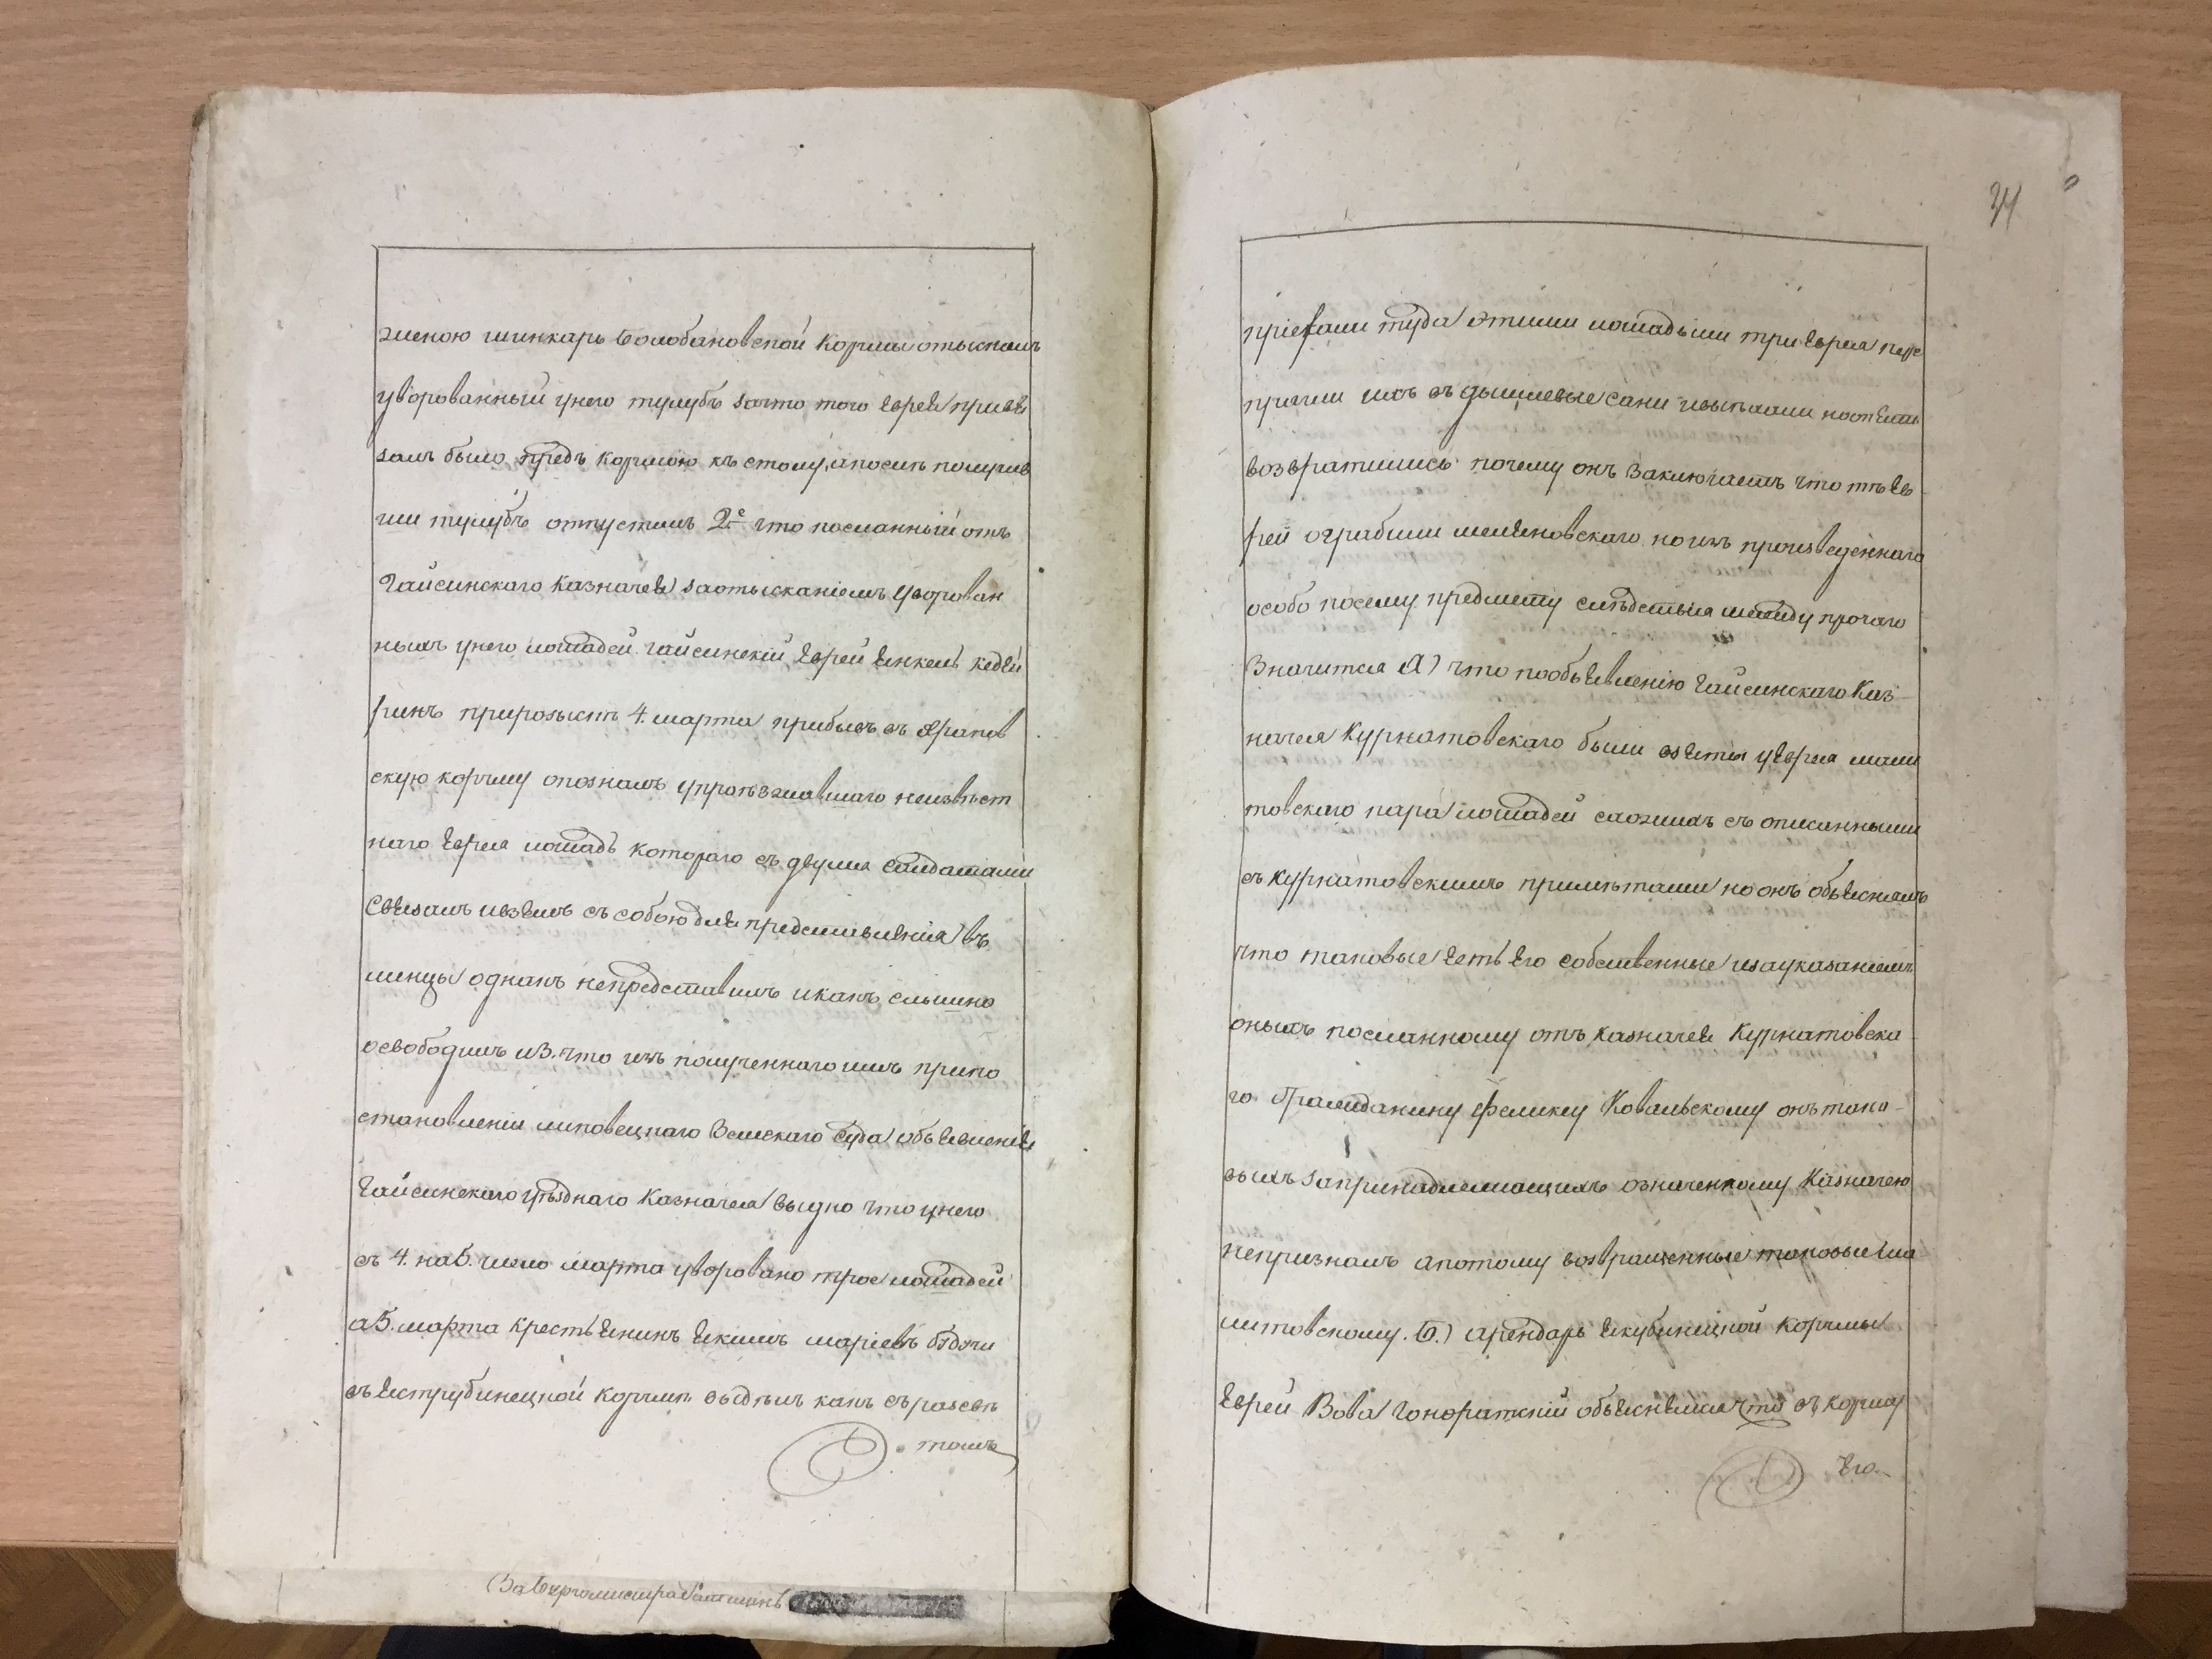 женою шинкарь Болобановской корчмы отыскалъ
уворованный унего тулубъ зачто того еврея привя
залъ было предъ корчмою къ столу, апослѣ получив
ши тулубъ отпустилъ 2е что посланный отъ
Гайсинскаго Казначея заотысканіемъ уворован
ныхъ унего лошадей гайсинскій еврей Янкель
прирозыскѣ 4. марта прибывъ въ
скую корчму опозналъ упроѣзжавшаго неизвѣст
наго еврея лошадь котораго съ двумя солдатами
связалъ ивзялъ съ собою для представленія въ
линцы однакъ непредставилъ икакъ слышно
освободилъ и3. что изъ полученнаго имъ припо
становленіи липовецкаго Земскаго Суда объявленія
Гайсинскаго уѣзднаго Казначея выдно что унего
съ 4. на5. число марта уворовано трое лошадей
а5. марта крестьянинъ Якимъ маріевъ будучи
въ Яструбинецкой корчмѣ выдѣлъ какъ съ разсвѣ
томъ
За Бургомистра
34
пріехали туда этими лошадьми три еврея пере
пригли ихъ въ дышлевые сани ивыехали
возвратились почему онъ заключаетъ что тѣ ев
реи ограбили но изъ произведеннаго
особо посему предмету слѣдствія между прочаго
Значится А) что пообъявленію Гайсинскаго Каз-
начея Курнатовскаго были взяты уеврея мали
товскаго пара лошадей схожихъ съ описанными
съ курнатовскимъ примѣтами но онъ объяснилъ
что таковые есть его собственные изауказаніемъ
оныхъ посланному отъ казначея Курнатовска-
го Гражданину Феликсу Ковальскому онъ тако-
выхъ запринадлежащихъ означенному Казначею
непризналъ апотому возвращенные таковые ма
литовскому. Б.) арендарь Якубинецкой корчмы
еврей Вова Гоноратскій объяснялся что въ корчму
Его